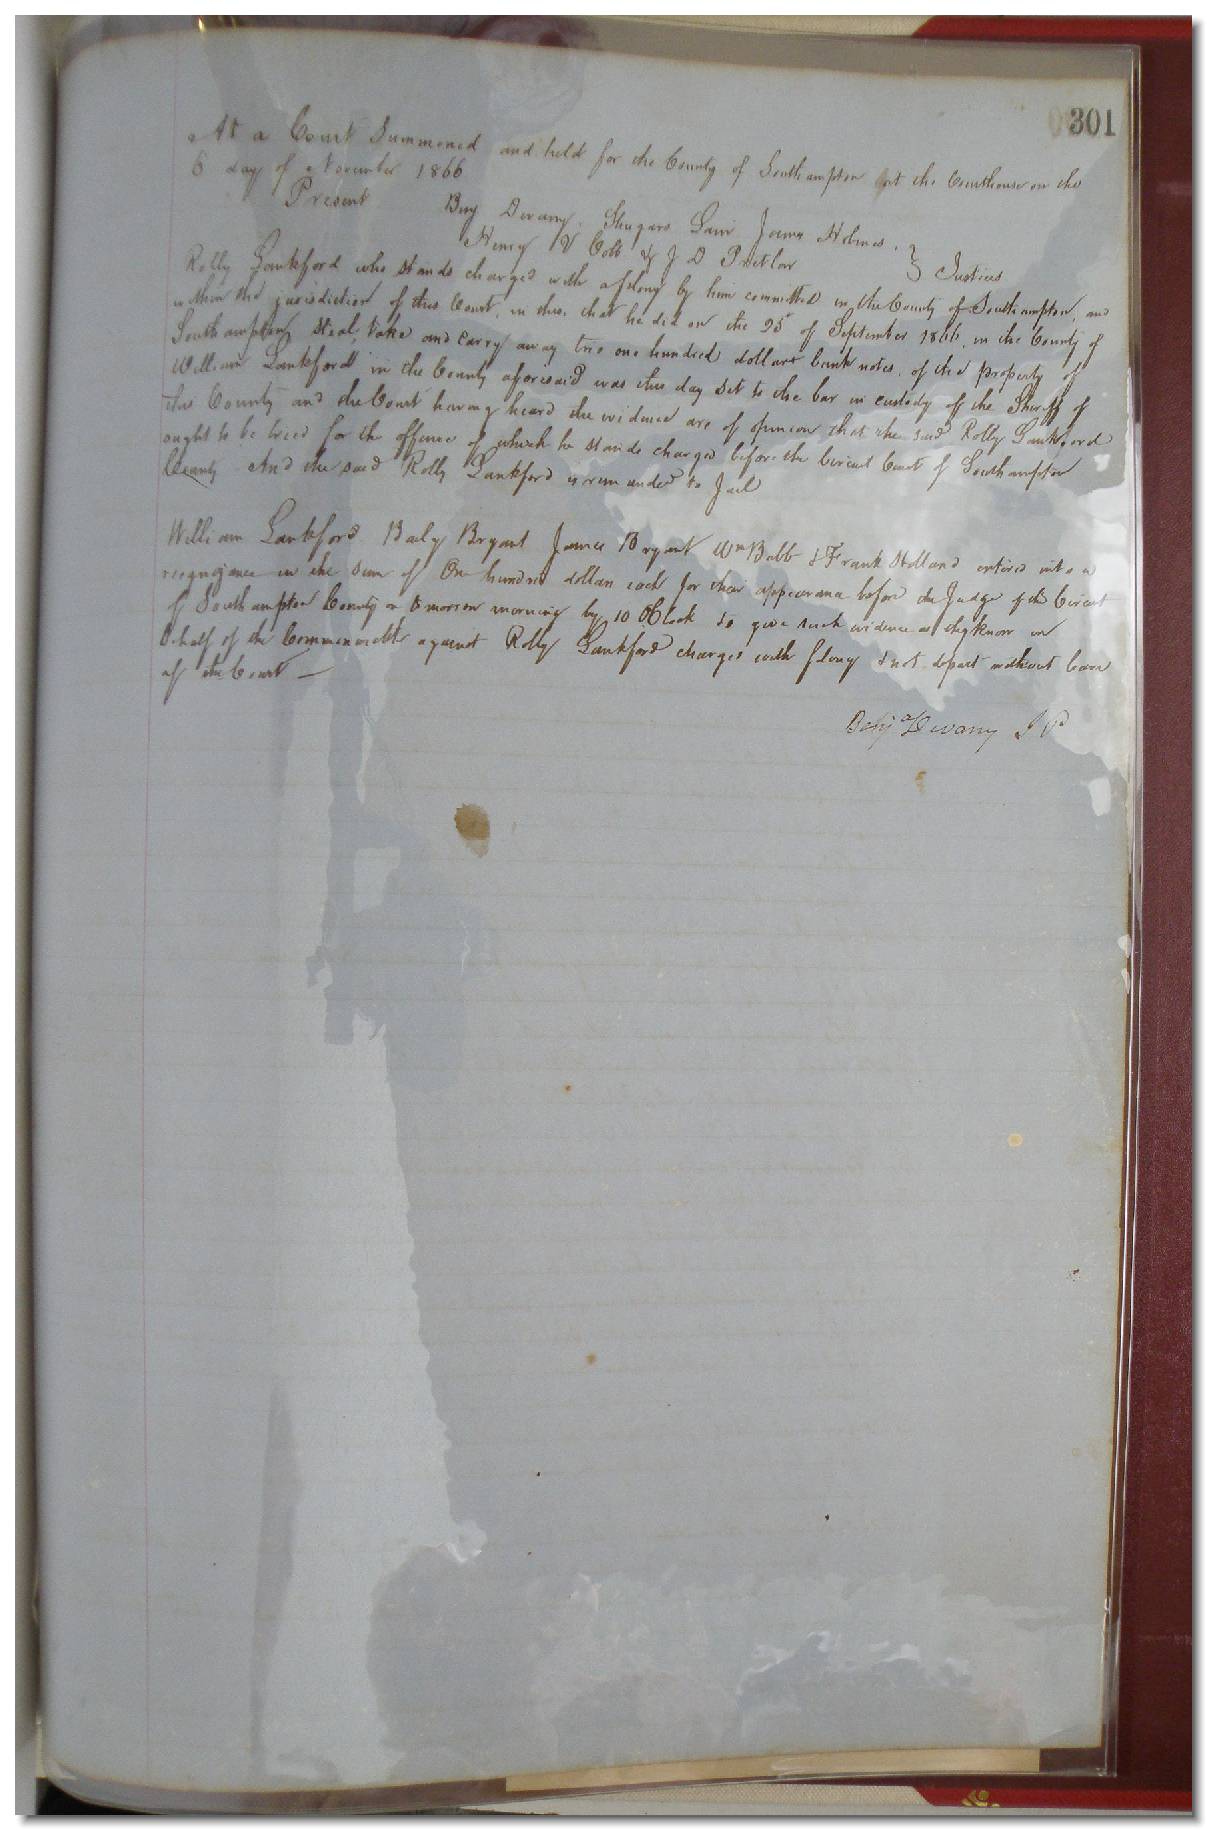 301
At a Court Summoned and held for the County of Southampton at the Courthouse on the
6 day of November 1866
Present Benj Devany, Shugars Lain James Holmes,
Henry V Cobb & J D Pretlow } Justices
Rolly Lankford who stands charged with a felony by him committed in the County of Southampton, and
within the jurisdiction of this Court, in this, that he did on the 25 of September 1866, in the County of
Southampton, steal, take and carry away two one hundred dollars bank notes, of the property of
William Lankford in the County aforesaid was this day set to the bar in custody of the Sheriff of
this County and the Court having heard the evidence are of opinion that the said Rolly Lankford
ought to be tried for the offence of which he stands charged before the Circuit Court of Southampton
County And the said Rolly Lankford is remanded to Jail
William Lankford Baily Bryant James Bryant Wm Babb & Frank Holland entered into a
recognizance in the sum of One hundred dollars each for their appearance before the Judge of the Circuit
of Southampton County on tomorrow morning by 10 OClock to give such evidence as they know in
behalf of the Commonwealth against Rolly Lankford charged with felony & not depart without leave
of the Court —
Benja Devany J P